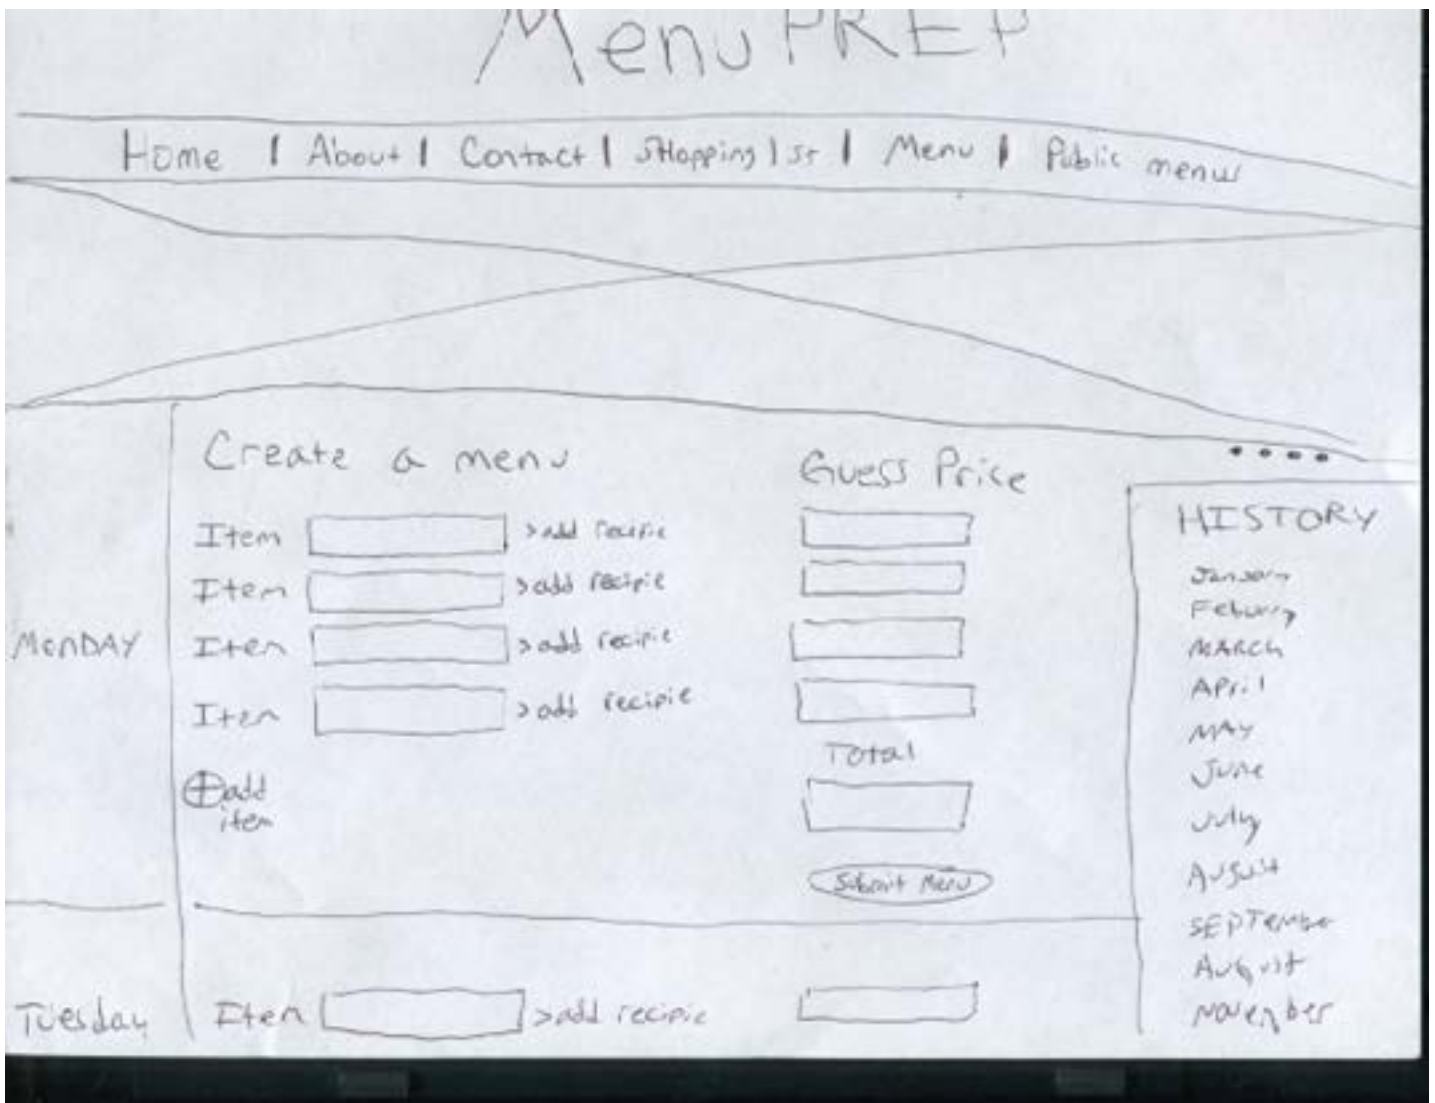 MenuPREP
Home | About | Contact | SHopping lst | Menu | Public menus
Create a menu
Guess Price
Item >add recipie
Item >add recipie
MonDAY
Item >add recipie
Item >add recipie
Total
add
item
Submit Menu
Tuesday
Item >add recipie
HISTORY
January
MARCH
April
MAY
June
July
August
SEPTember
August
November